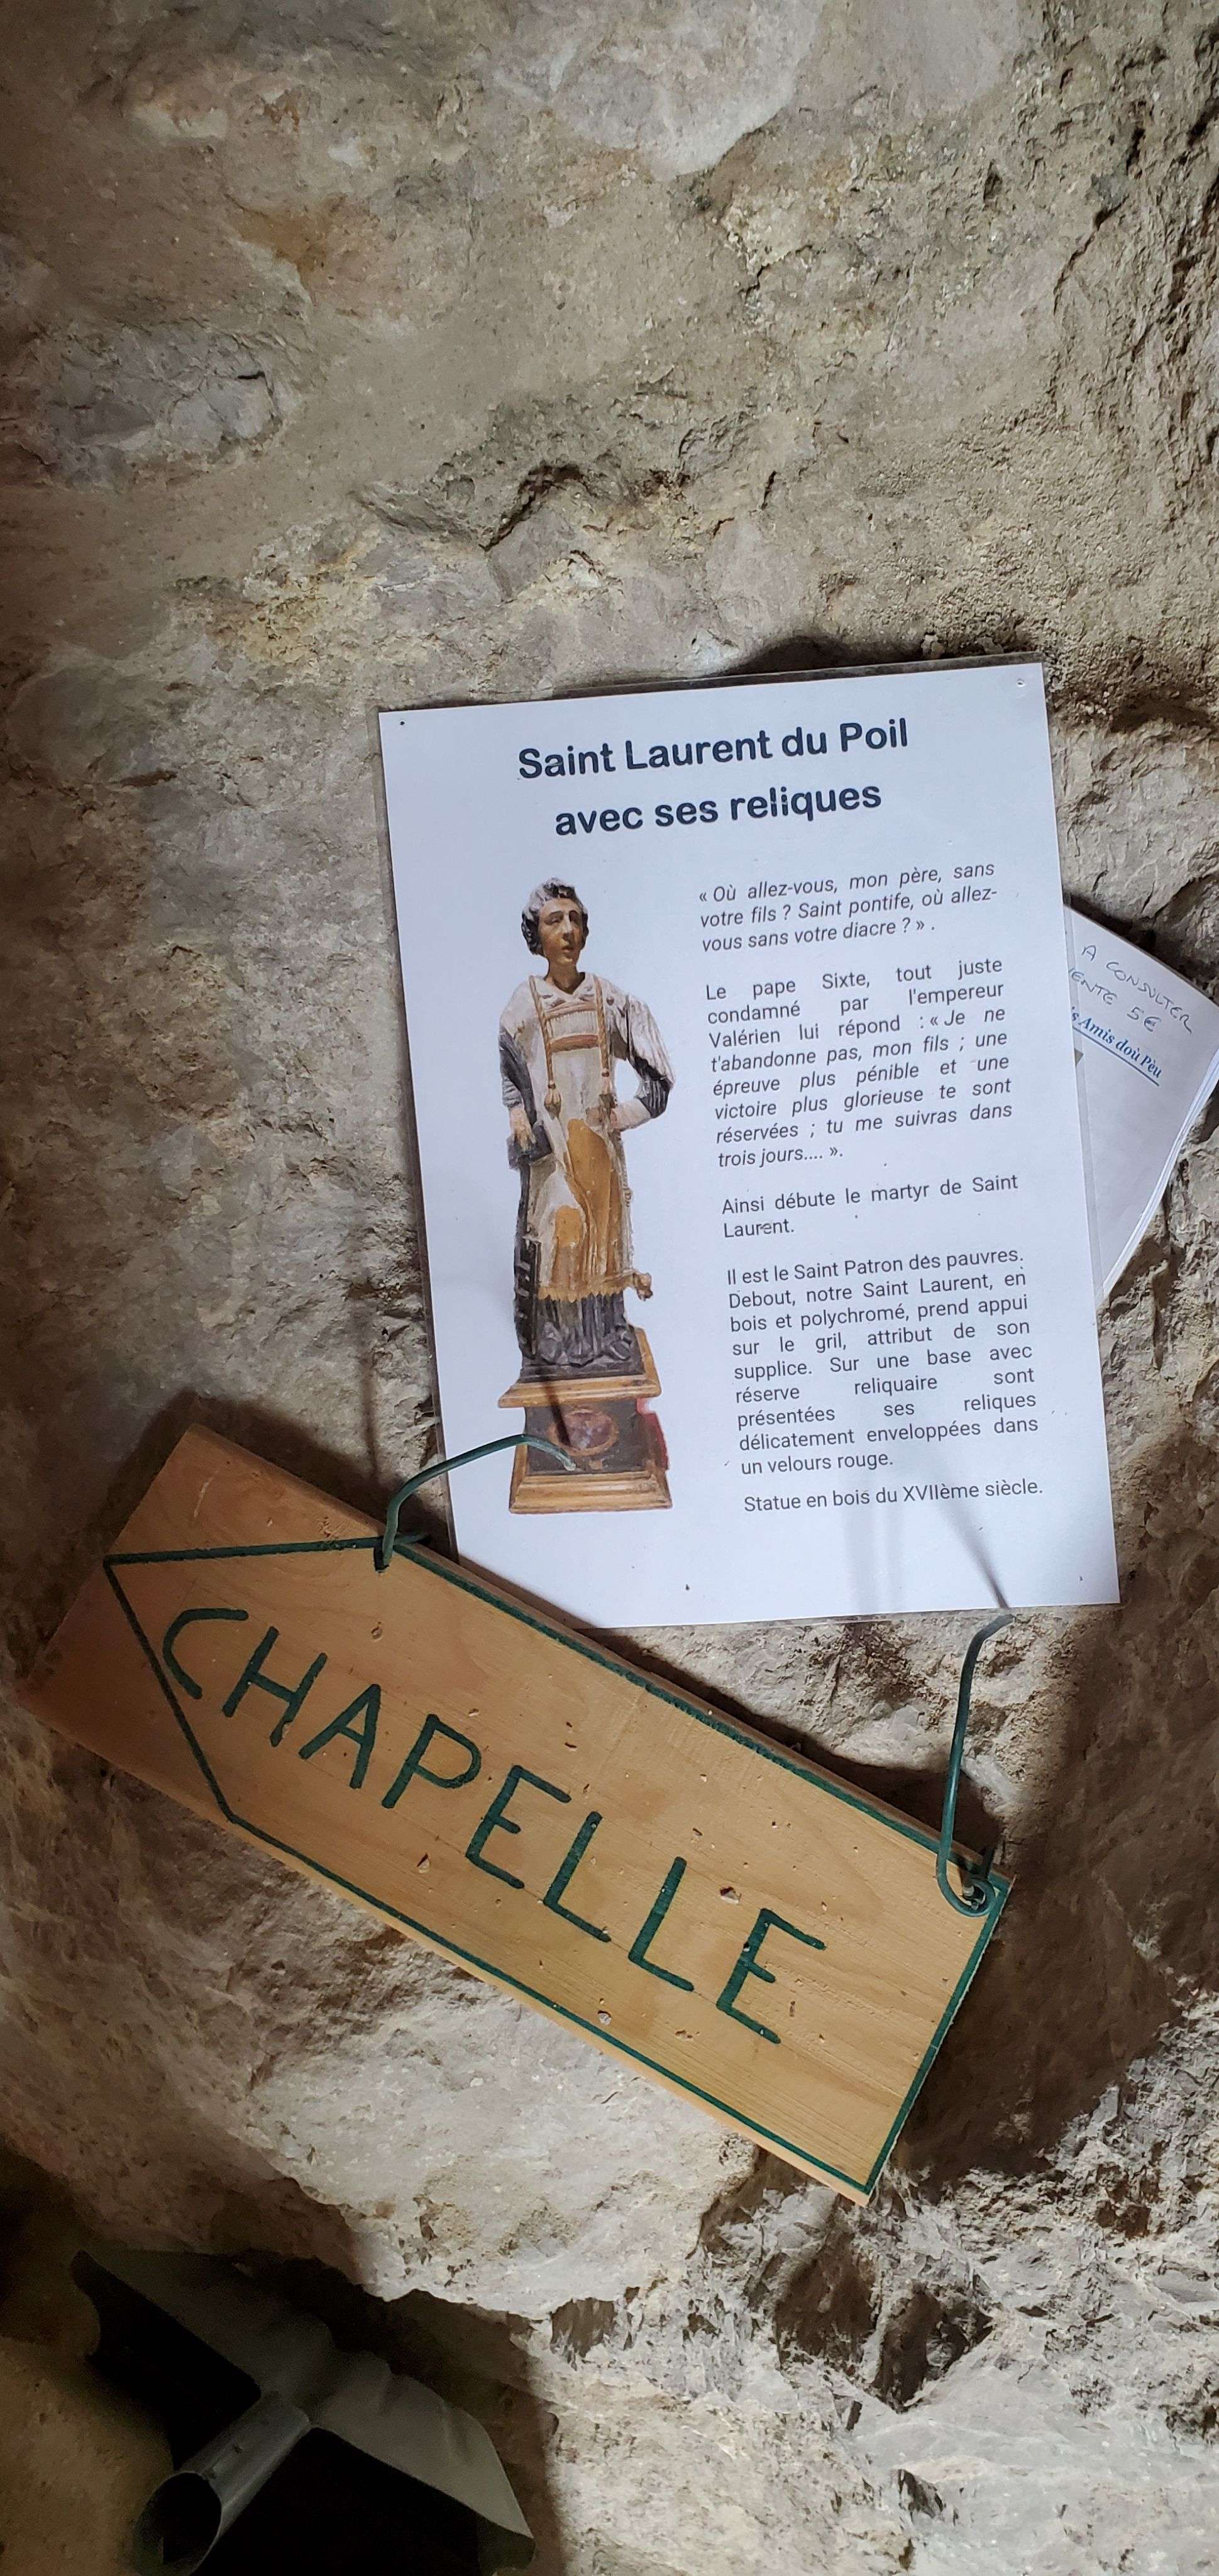 Saint Laurent du Poil
avec ses reliques
« Où allez-vous, mon père, sans
votre fils ? Saint pontife, où allez-
vous sans votre diacre ? » .
Le pape Sixte, tout juste
condamné par l'empereur
Valérien lui répond : « Je ne
t'abandonne pas, mon fils ; une
épreuve plus pénible et une
victoire plus glorieuse te sont
réservées ; tu me suivras dans
trois jours.... ».
Ainsi débute le martyr de Saint
Laurent.
Il est le Saint Patron des pauvres.
Debout, notre Saint Laurent, en
bois et polychromé, prend appui
sur le gril, attribut de son
supplice. Sur une base avec
réserve reliquaire sont
présentées ses reliques
délicatement enveloppées dans
un velours rouge.
Statue en bois du XVIIème siècle.
A CONSULTER
VENTE 5€
Amis doù Pèu
CHAPELLE